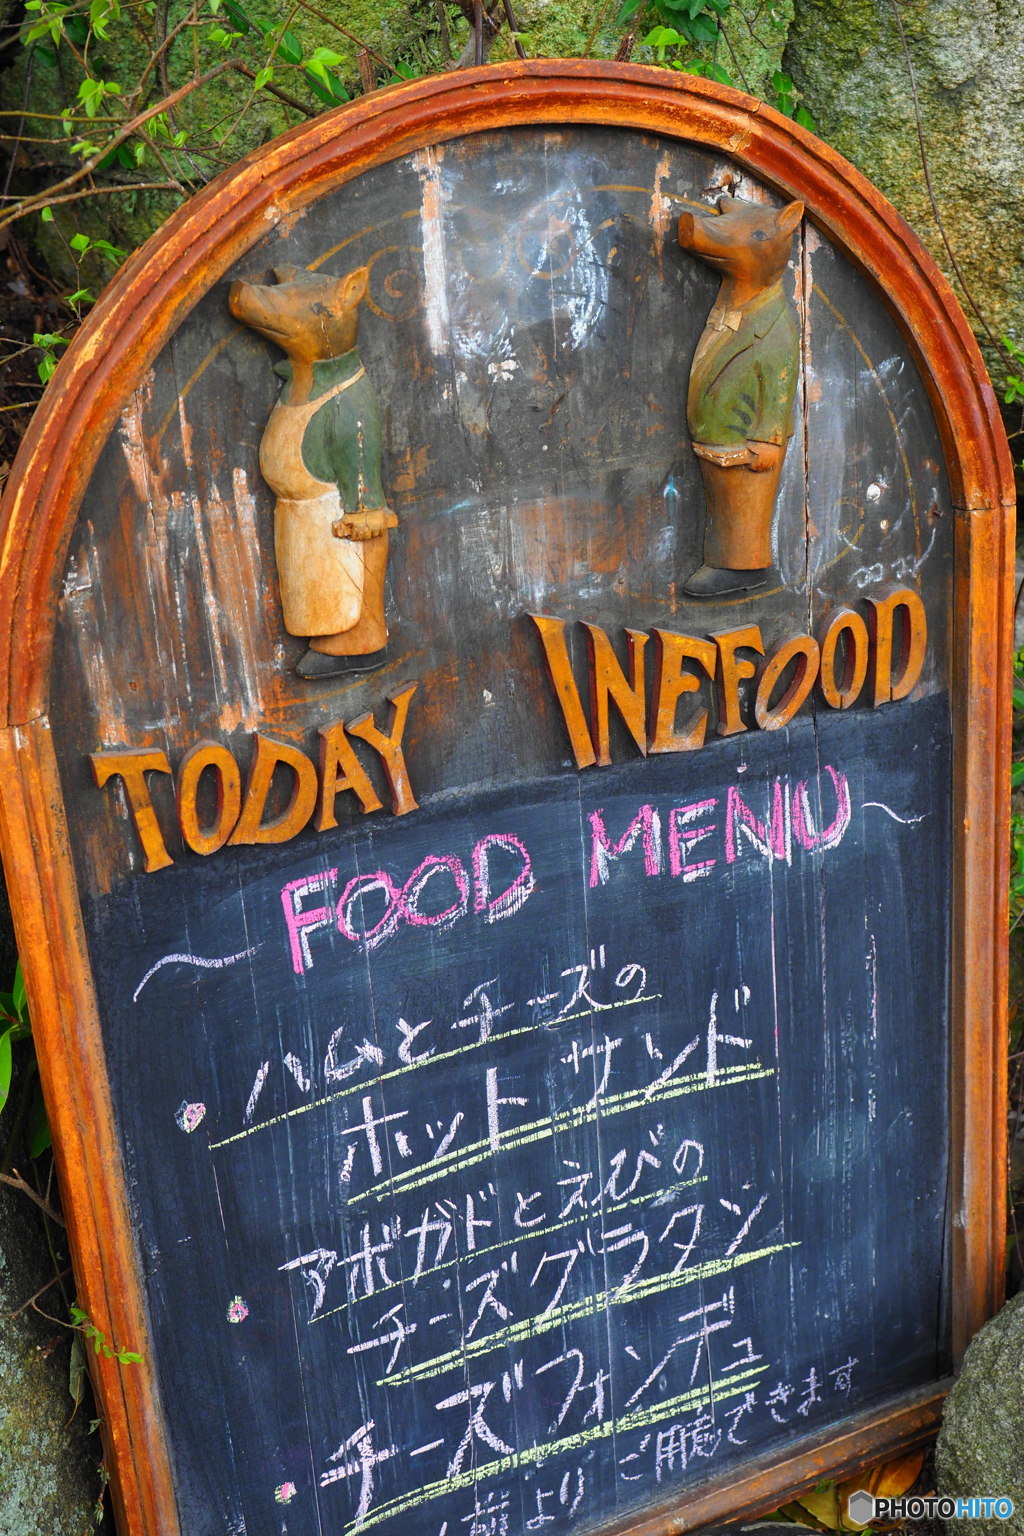 TODAY WEFOOD
~ FOOD MENU ~
・ハムとチーズの
ホットサンド
・アボガドとえびの
チーズグラタン
・チーズフォンデュ
より ご用意できます
PHOTOHITO